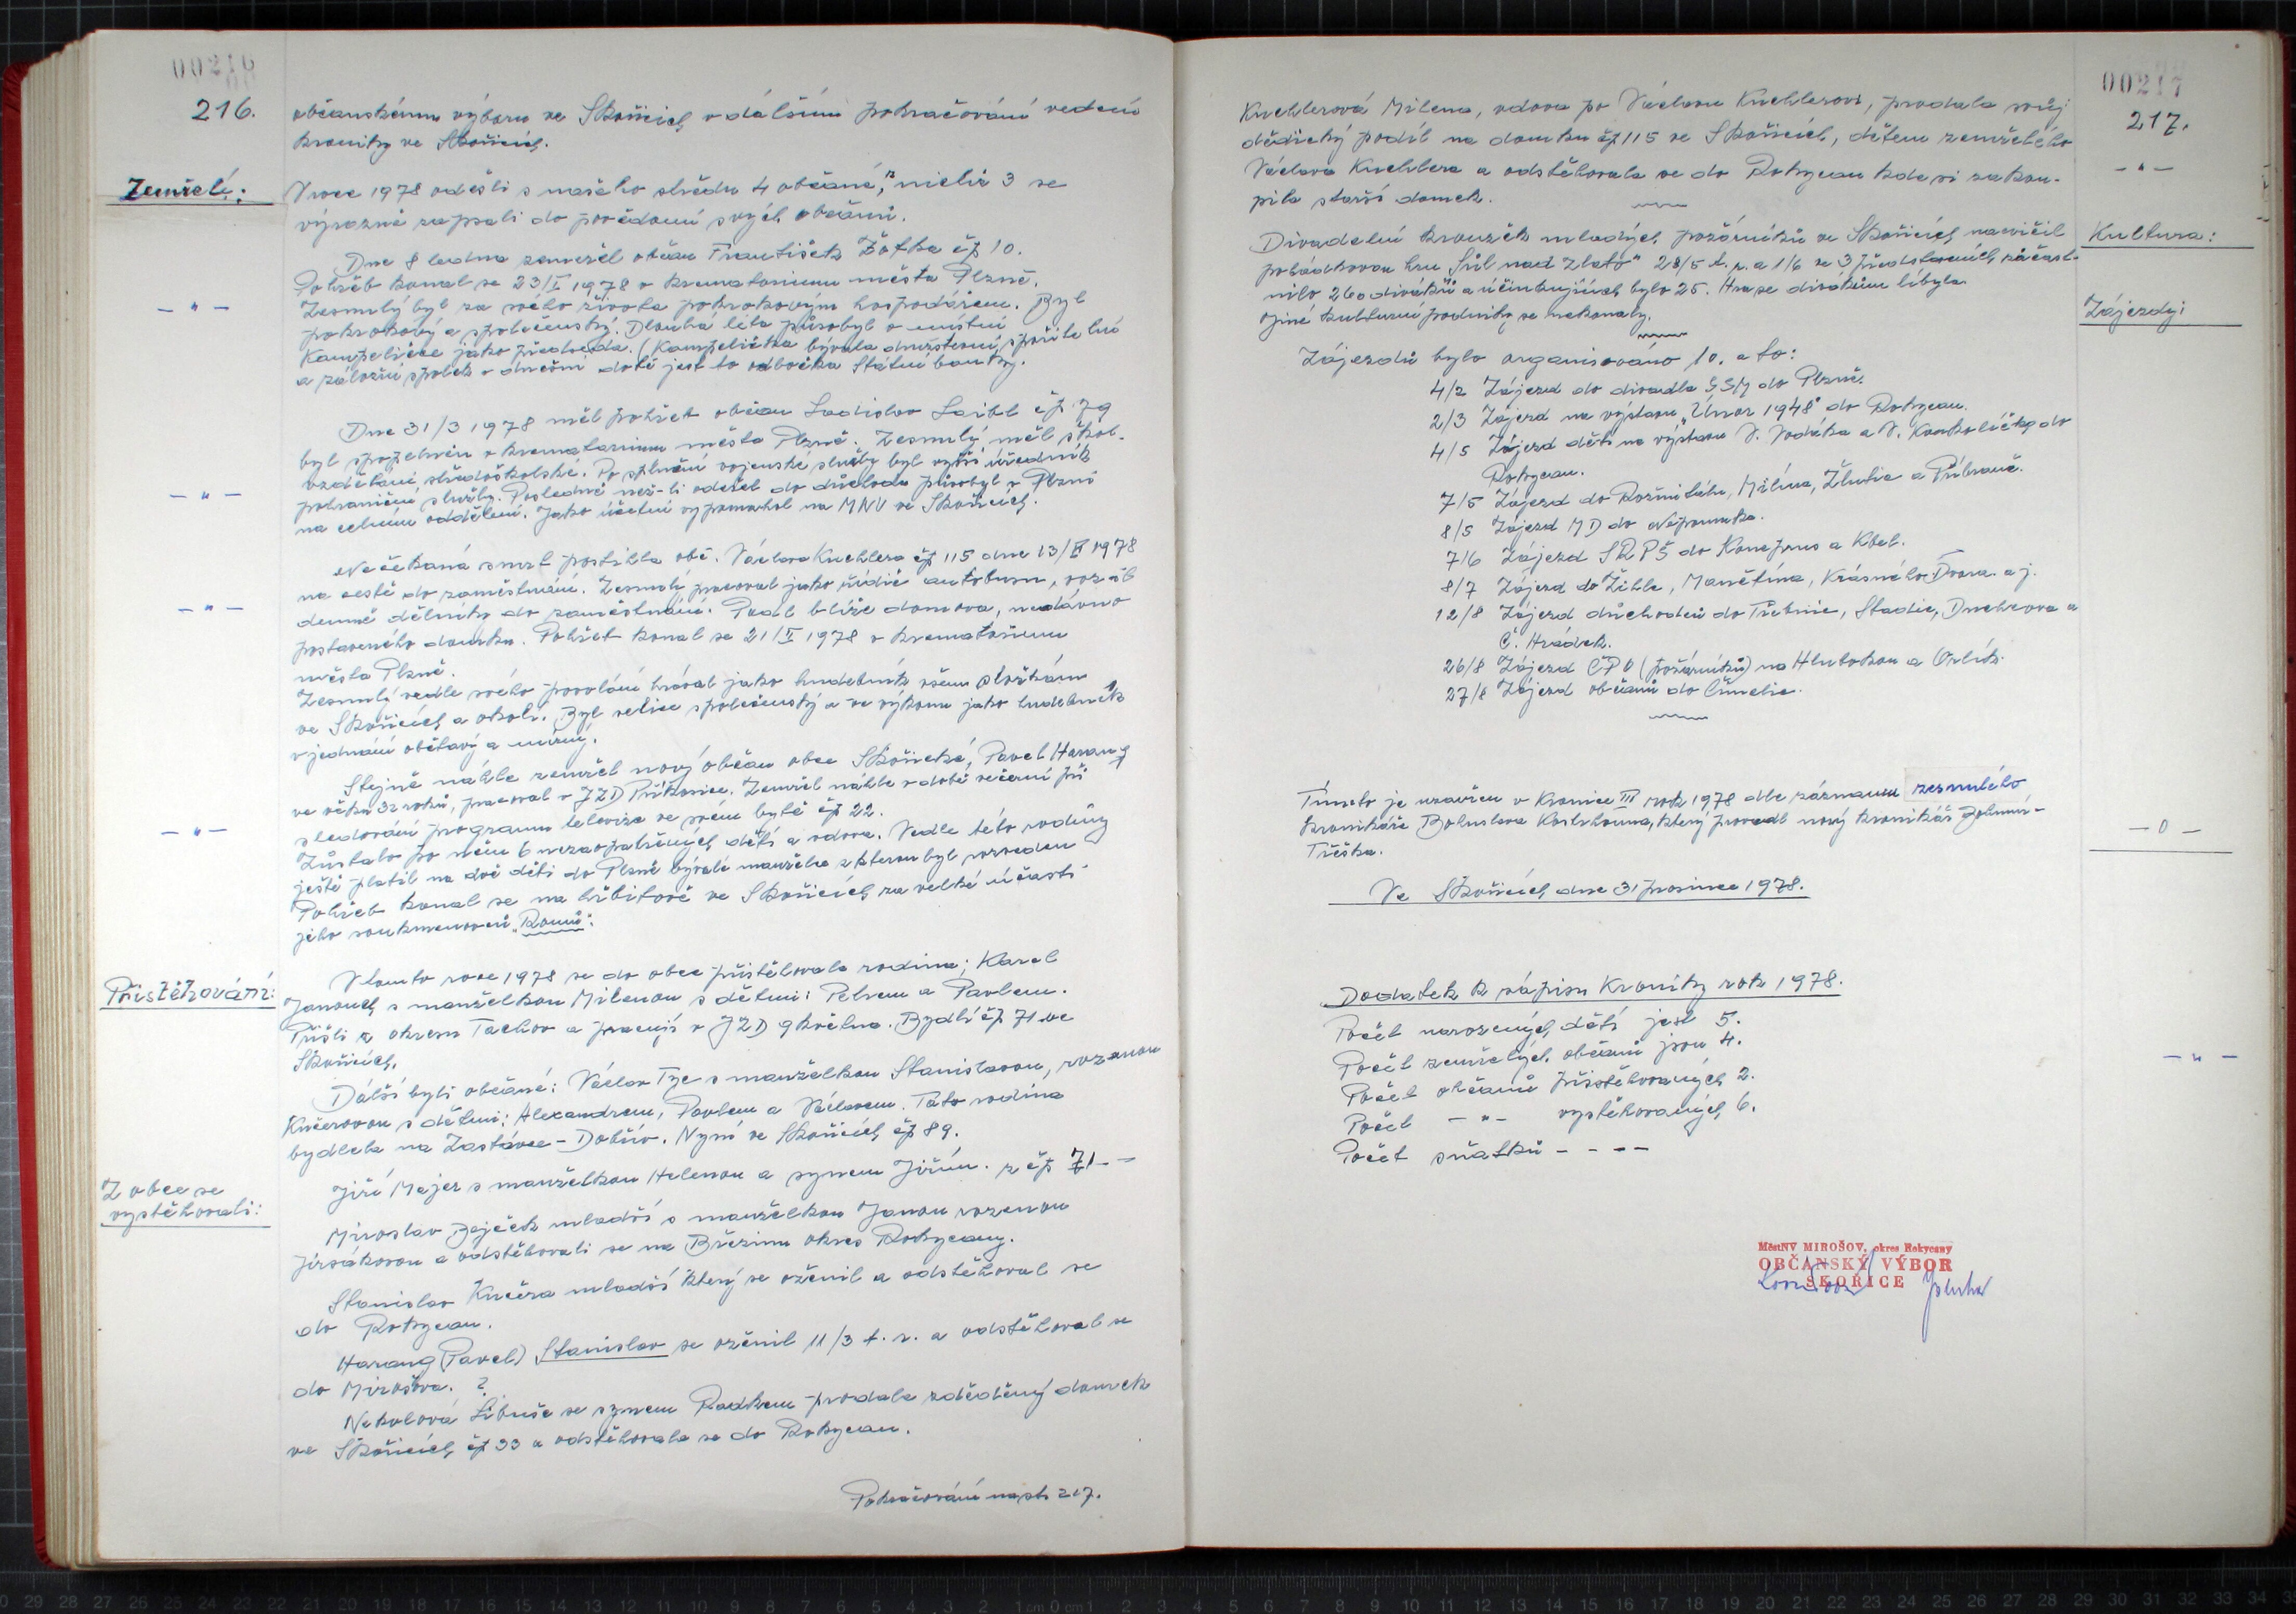 00216
216.
občanskému výboru ve Skořicích v dálšímu pokračování vedení
kroniky ve Skořicích.
Zemřelí:
V roce 1978 odešli s našeho středu 4 občané, z nichž 3 se
výrazně zapsali do povědomí svých občanů.
Dne 8 ledna zemřel občan František Žofka čp 10.
Pohřeb konal se 23/I 1978 v krematorium města Plzně.
— " —
Zesnulý byl za svého života pokrokovým hospodářem. Byl
pokrokový a společenský. Dlouhá léta působyl v místní
Kampeličce jako předseda. (Kampelička bývala družstevní spořitelní
a záložní spolek v dnešní době jest to odbočka Státní banky.
Dne 31/3 1978 měl pohřeb občan Ladislav Laibl čp 79
byl zpopelněn v krematorium města Plzně. Zesnulý měl škol.
vzdělání středoškolské. Po splnění vojenské služby byl vyšší úředník
— " —
pohraniční služby. Posledně než-li odešel do důchodu působyl v Plzni
na celním oddělení. Jako účetní vypomáhal na MNV ve Skořicích.
Nečekaná smrt postihla obč. Václava Kuchlera čp 115 dne 13/II 1978
na cestě do zaměstnání. Zesnulý pracoval jako řidič autobusu, vozil
— " —
denně dělníky do zaměstnání. Padl blíže domova, nedávno
postaveného domku. Pohřeb konal se 21/II 1978 v krematorium
města Plzně.
Zesnulý vedle svého povolání hrával jako hudebník všem složkám
ve Skořicích a okolí. Byl velice společenský a ve výkonu jako hudebník
v jednání obětavý a mírný.
Stejně náhle zemřel nový občan obce Skořické, Pavel Harang
ve věku 32 roků, pracoval v JZD Příkosice. Zemřel náhle v době večerní při
— " —
sledování programu televize ve svém bytě čp 22.
Zůstalo po něm 6 nezaopatřených dětí a vdova. Vedle této rodiny
ještě platil na dvě děti do Plzně bývalé manželce s kterou byl rozveden
Pohřeb konal se na hřbitově ve Skořicích za velké účasti
jeho soukmenovců "Romů".
Přistěhování:
V tomto roce 1978 se do obce přistěhovala rodina; Karel
Janouch s manželkou Milenou s dětmi: Petrem a Pavlem.
Přišli z okresu Tachov a pracují v JZD 9 května. Bydlí čp 71 ve
Skořicích.
Dálší byli občané: Václav Tyc s manželkou Stanislavou, rozenou
Kučerovou s dětmi: Alexandrem, Pavlem a Václavem. Tato rodina
bydlela na Zastávce - Dobřív. Nyní ve Skořicích čp 89.
Z obce se
vystěhovali:
Jiří Majer s manželkou Helenou a synem Jiřím. z čp 71 - -
Miroslav Zajíček mladší s manželkou Janou rozenou
Jirsákovou a odstěhovali se na Březinu okres Rokycany.
Stanislav Kučera mladší který se oženil a odstěhoval se
do Rokycan.
Harang (Pavel) Stanislav se oženil 11/3 t. r. a odstěhoval se
do Mirošova. ?
Nekolová Libuše se synem Radkem prodala zděděný domek
ve Skořicích čp 33 a odstěhovala se do Rokycan.
Pokračování na str. 217.
00217
217.
Kuchlerová Milena, vdova po Václavu Kuchlerovi, prodala svůj
dědický podíl na domku čp 115 ve Skořicích, dětem zemřelého
Václava Kuchlera a odstěhovala se do Rokycan kde si zakou-
— " —
pila starší domek.
Kultura:
Divadelní kroužek mladých požárníků ve Skořicích nacvičil
pohádkovou hru "Sůl nad zlato" 28/5 t. r. a 1/6 se 3 představeních zúčast-
nilo 260 diváků a účinkujících bylo 25. Hra se divákům líbyla.
Jiné kulturní podniky se nekonaly.
Zájezdy:
Zájezdů bylo organisováno 10. a to:
4/2 Zájezd do divadla SSM do Plzně.
2/3 Zájezd na výstavu "Únor 1948" do Rokycan.
4/5 Zájezd dětí na výstavu V. Vodáka a V. Koukolíčky do
Rokycan.
7/5 Zájezd do Rožmitálu, Milína, Žlutic a Příbramě.
8/5 Zájezd MD do Nepomuka.
7/6 Zájezd SRPŠ do Koneprus a Kbel.
8/7 Zájezd do Žihle, Manětína, Krásného Dvora. a j.
12/8 Zájezd důchodců do Třebnic, Stadic, Duchcova a
Č. Hrádek.
26/8 Zájezd ČPO (požárníků) na Hlubokou a Orlík.
27/8 Zájezd občanů do Čimelic.
Tímto je uzavřen v Kronice III rok 1978 dle záznamu zesnulého
kronikáře Bohuslava Kostrhouna, který provedl nový kronikář Bohumír
— 0 —
Tříska.
Ve Skořicích dne 31 prosince 1978.
Dodatek k zápisu Kroniky rok 1978.
Počet narozených dětí jest 5.
Počet zemřelých občanů jsou 4.
— " —
Počet občanů přistěhovaných 2.
Počet — " — vystěhovaných 6.
Počet sňatků - - - -
MěstNV MIROŠOV, okres Rokycany
OBČANSKÝ VÝBOR
SKOŘICE